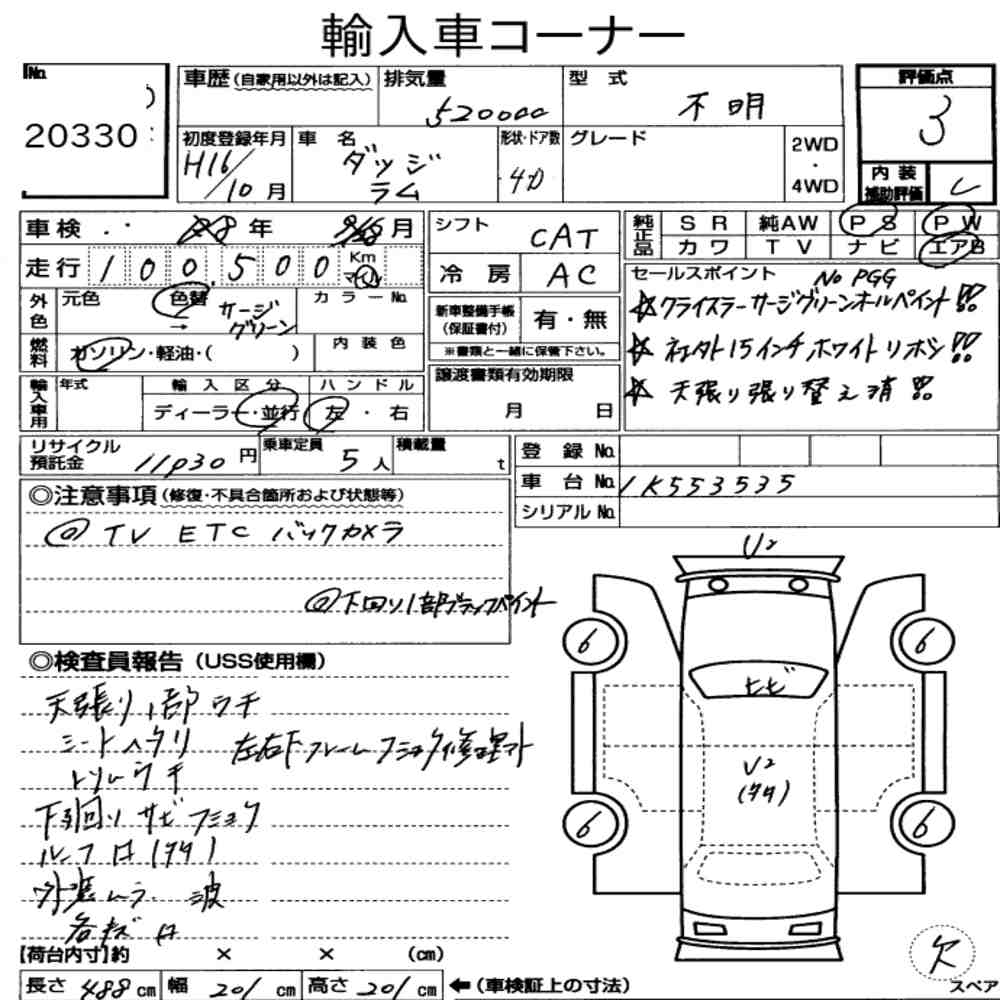 輸入車コーナー
No.
20330
車歴(自家用以外は記入)
排気量
5200cc
型式
不明
評価点
3
初度登録年月
H16/10月
車名
ダッジ
ラム
形状・ドア数
4D
グレード
2WD
・
4WD
内装
補助評価
車検 ・・ 年 月
走行 100500 Km
マイル
シフト
CAT
冷房 AC
純正品
SR 純AW PS PW
カワ TV ナビ エアB
セールスポイント No PGG
☆クライスラーサージグリーンオールペイント!!
☆社外15インチホワイトリボン!!
☆天張り張り替え済!!
外色
元色
色替
→
サージ
グリーン
カラーNo.
燃料
ガソリン・軽油・( )
内装色
新車整備手帳
(保証書付)
有・無
※書類と一緒に保管下さい。
輸入車用
年式
輸入区分
ディーラー・並行
ハンドル
左・右
譲渡書類有効期限
月 日
リサイクル
預託金
11930円
乗車定員
5人
積載量
t
登録No.
車台No. 1K553535
シリアルNo.
◎注意事項(修復・不具合箇所および状態等)
◎TV ETC バックカメラ
◎下回り1部ブラックペイント
◎検査員報告(USS使用欄)
天張り1部ウキ
シートヘタリ
左右下フレームフショク修理アト
トリムウキ
下回りサビフショク
ルーフ
外装ムラ・波
各キズ
U2
6
6
ヒビ
U2
6
6
欠
スペア
【荷台内寸】約 × × (cm)
長さ488cm 幅201cm 高さ201cm ←(車検証上の寸法)